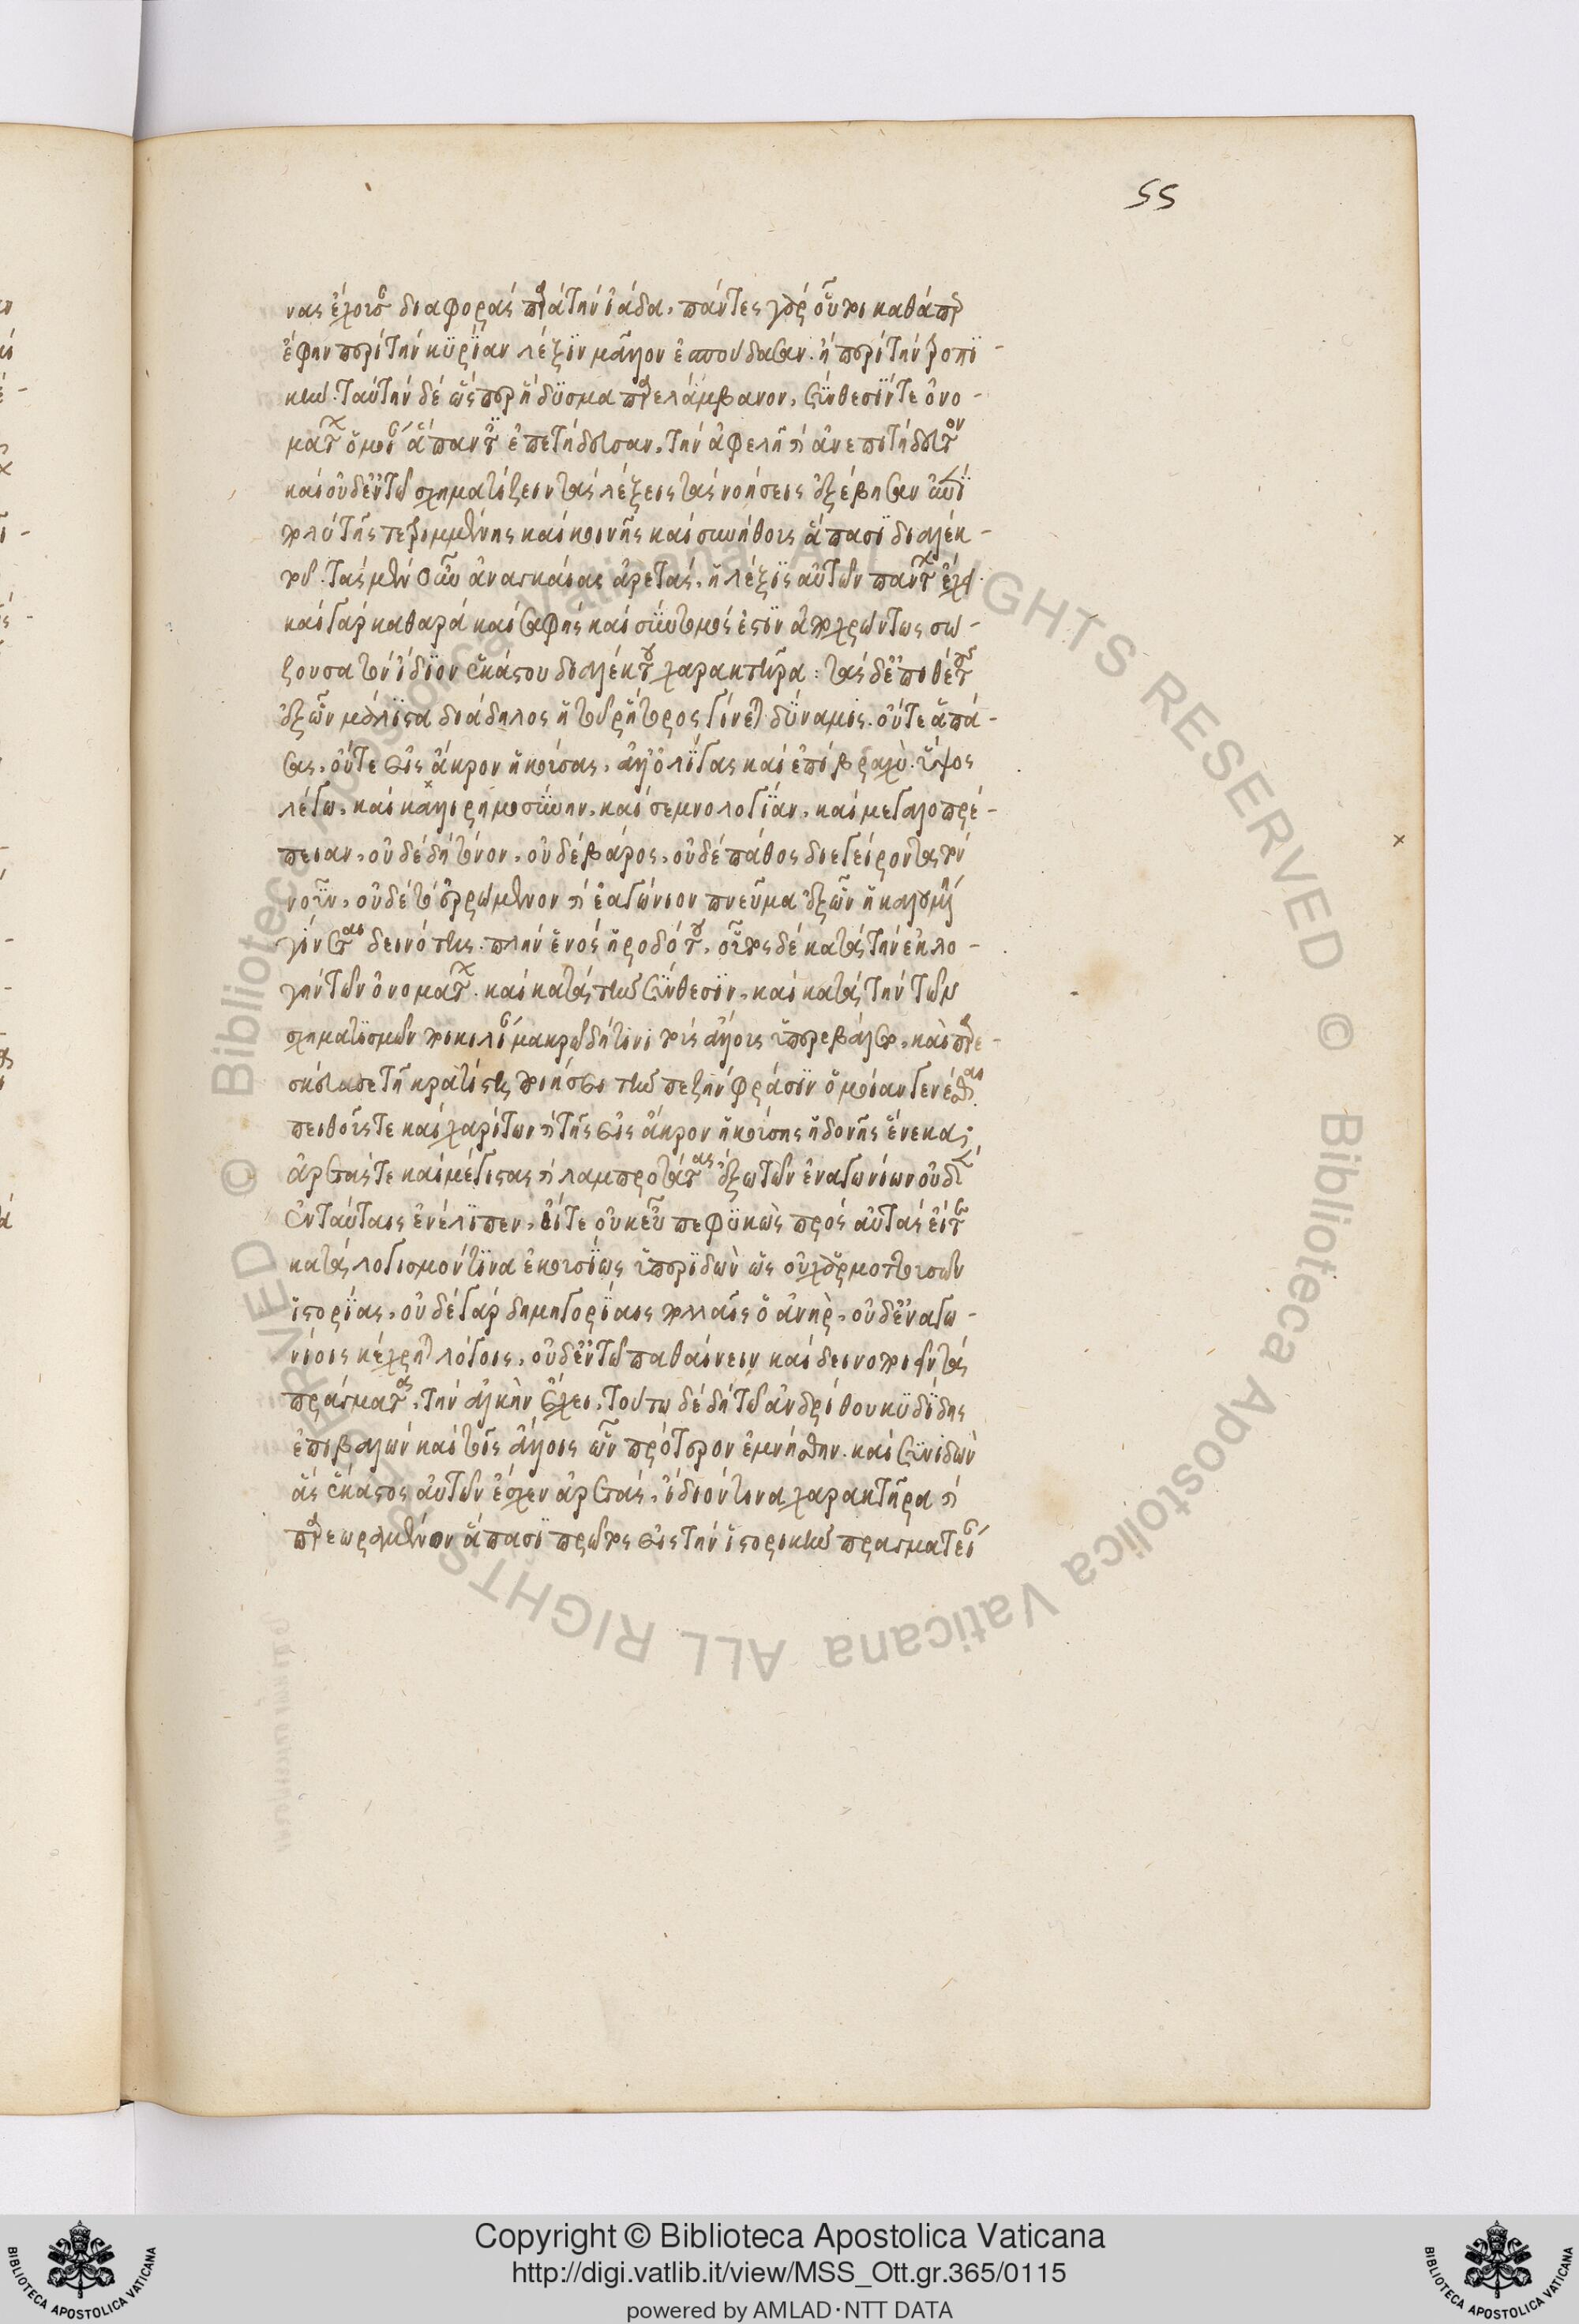 55
νας ἔχουσαν διαφορὰς παρὰ τὴν ἰάδα. πάντες γὰρ οὗτοι καθάπερ
ἔφην περὶ τὴν κυρίαν λέξιν μᾶλλον ἐσπούδασαν. ἢ περὶ τὴν τροπι-
κήν. ταύτην δὲ ὥσπερ ἥδυσμα παρελάμβανον. σύνθεσίν τε ὀνο-
μάτων ὁμοίαν ἅπαντες ἐπετήδευσαν, τὴν ἀφελῆ καὶ ἀνεπιτήδευτον
καὶ οὐδ' ἐν τῶ σχηματίζειν τὰς λέξεις τὰς νοήσεις ἐξέβησαν
πολὺ τῆς τετριμμένης καὶ κοινῆς καὶ συνήθους ἅπασι διαλέκ-
του. τὰς μὲν οὖν ἀναγκαίας ἀρετὰς, ἡ λέξις αὐτῶν πάντων ἔχει.
καὶ γὰρ καθαρὰ καὶ σαφὴς καὶ σύντομός ἐστιν ἀποχρώντως σώ-
ζουσα τὸν ἴδιον ἑκάστου διαλέκτου χαρακτῆρα: τὰς δ' ἐπιθέτους
ἐξ ὧν μάλιστα διάδηλος ἡ τοῦ ῥήτορος γίνεται δύναμις. οὔτε ἁπά-
σας, οὔτε εἰς ἄκρον ἡκούσας, ἀλλ' ὀλίγας καὶ ἐπὶ βραχὺ. ὕψος
λέγω, καὶ καλλιρημοσύνην, καὶ σεμνολογίαν, καὶ μεγαλοπρέ-
πειαν, οὐδὲ δὴ τόνον, οὐδὲ βάρος, οὐδὲ πάθος διεγεῖρον τὸν
νοῦν, οὐδὲ τὸ ἐρρωμένον καὶ ἐναγώνιον πνεῦμα ἐξ ὧν ἡ καλουμένη
γίνεται δεινότης. πλὴν ἑνὸς ἡροδότου, οὗτος δὲ κατὰ τὴν ἐκλο-
γὴν τῶν ὀνομάτων. καὶ κατὰ τὴν σύνθεσιν, καὶ κατὰ τὴν τῶν
σχηματισμῶν ποικιλίαν μακρῷ δή τινι τοὺς ἄλλους ὑπερεβάλετο, καὶ παρε-
σκεύασε τῆ κρατίστη ποιήσει τὴν πεζὴν φράσιν ὁμοίαν γενέσθαι
πειθοῦς τε καὶ χαρίτων καὶ τῆς εἰς ἄκρον ἡκούσης ἡδονῆς ἕνεκα;
ἀρετάς τε καὶ μεγίστας καὶ λαμπροτάτας ἔξω τῶν ἐναγωνίων οὐδὲν
ἐν ταύταις ἐνέλιπεν, εἴτε οὐκ εὖ πεφυκὼς πρὸς αὐτὰς εἴτε
κατὰ λογισμόν τινα ἑκουσίως ὑπεριδὼν ὡς οὐχ ἁρμοττουσῶν
ἱστορίας, οὐδὲ γὰρ δημηγορίαις πολλαῖς ὁ ἀνὴρ, οὐδ' ἐναγω-
νίοις κέχρηται λόγοις, οὐδ' ἐν τῶ παθαίνειν καὶ δεινοποιεῖν τὰ
πράγματα, τὴν ἀλκὴν ἔχει. τούτω δὲ δὴ τῶ ἀνδρὶ θουκυδίδης
ἐπιβαλὼν καὶ τοῖς ἄλλοις ὧν πρότερον ἐμνήσθην. καὶ συνιδὼν
ἃς ἕκαστος αὐτῶν ἔσχεν ἀρετὰς, ἴδιόν τινα χαρακτῆρα καὶ
παρεωραμένον ἅπασι πρῶτος εἰς τὴν ἱστορικὴν πραγματείαν
Copyright © Biblioteca Apostolica Vaticana
http://digi.vatlib.it/view/MSS_Ott.gr.365/0115
powered by AMLAD·NTT DATA